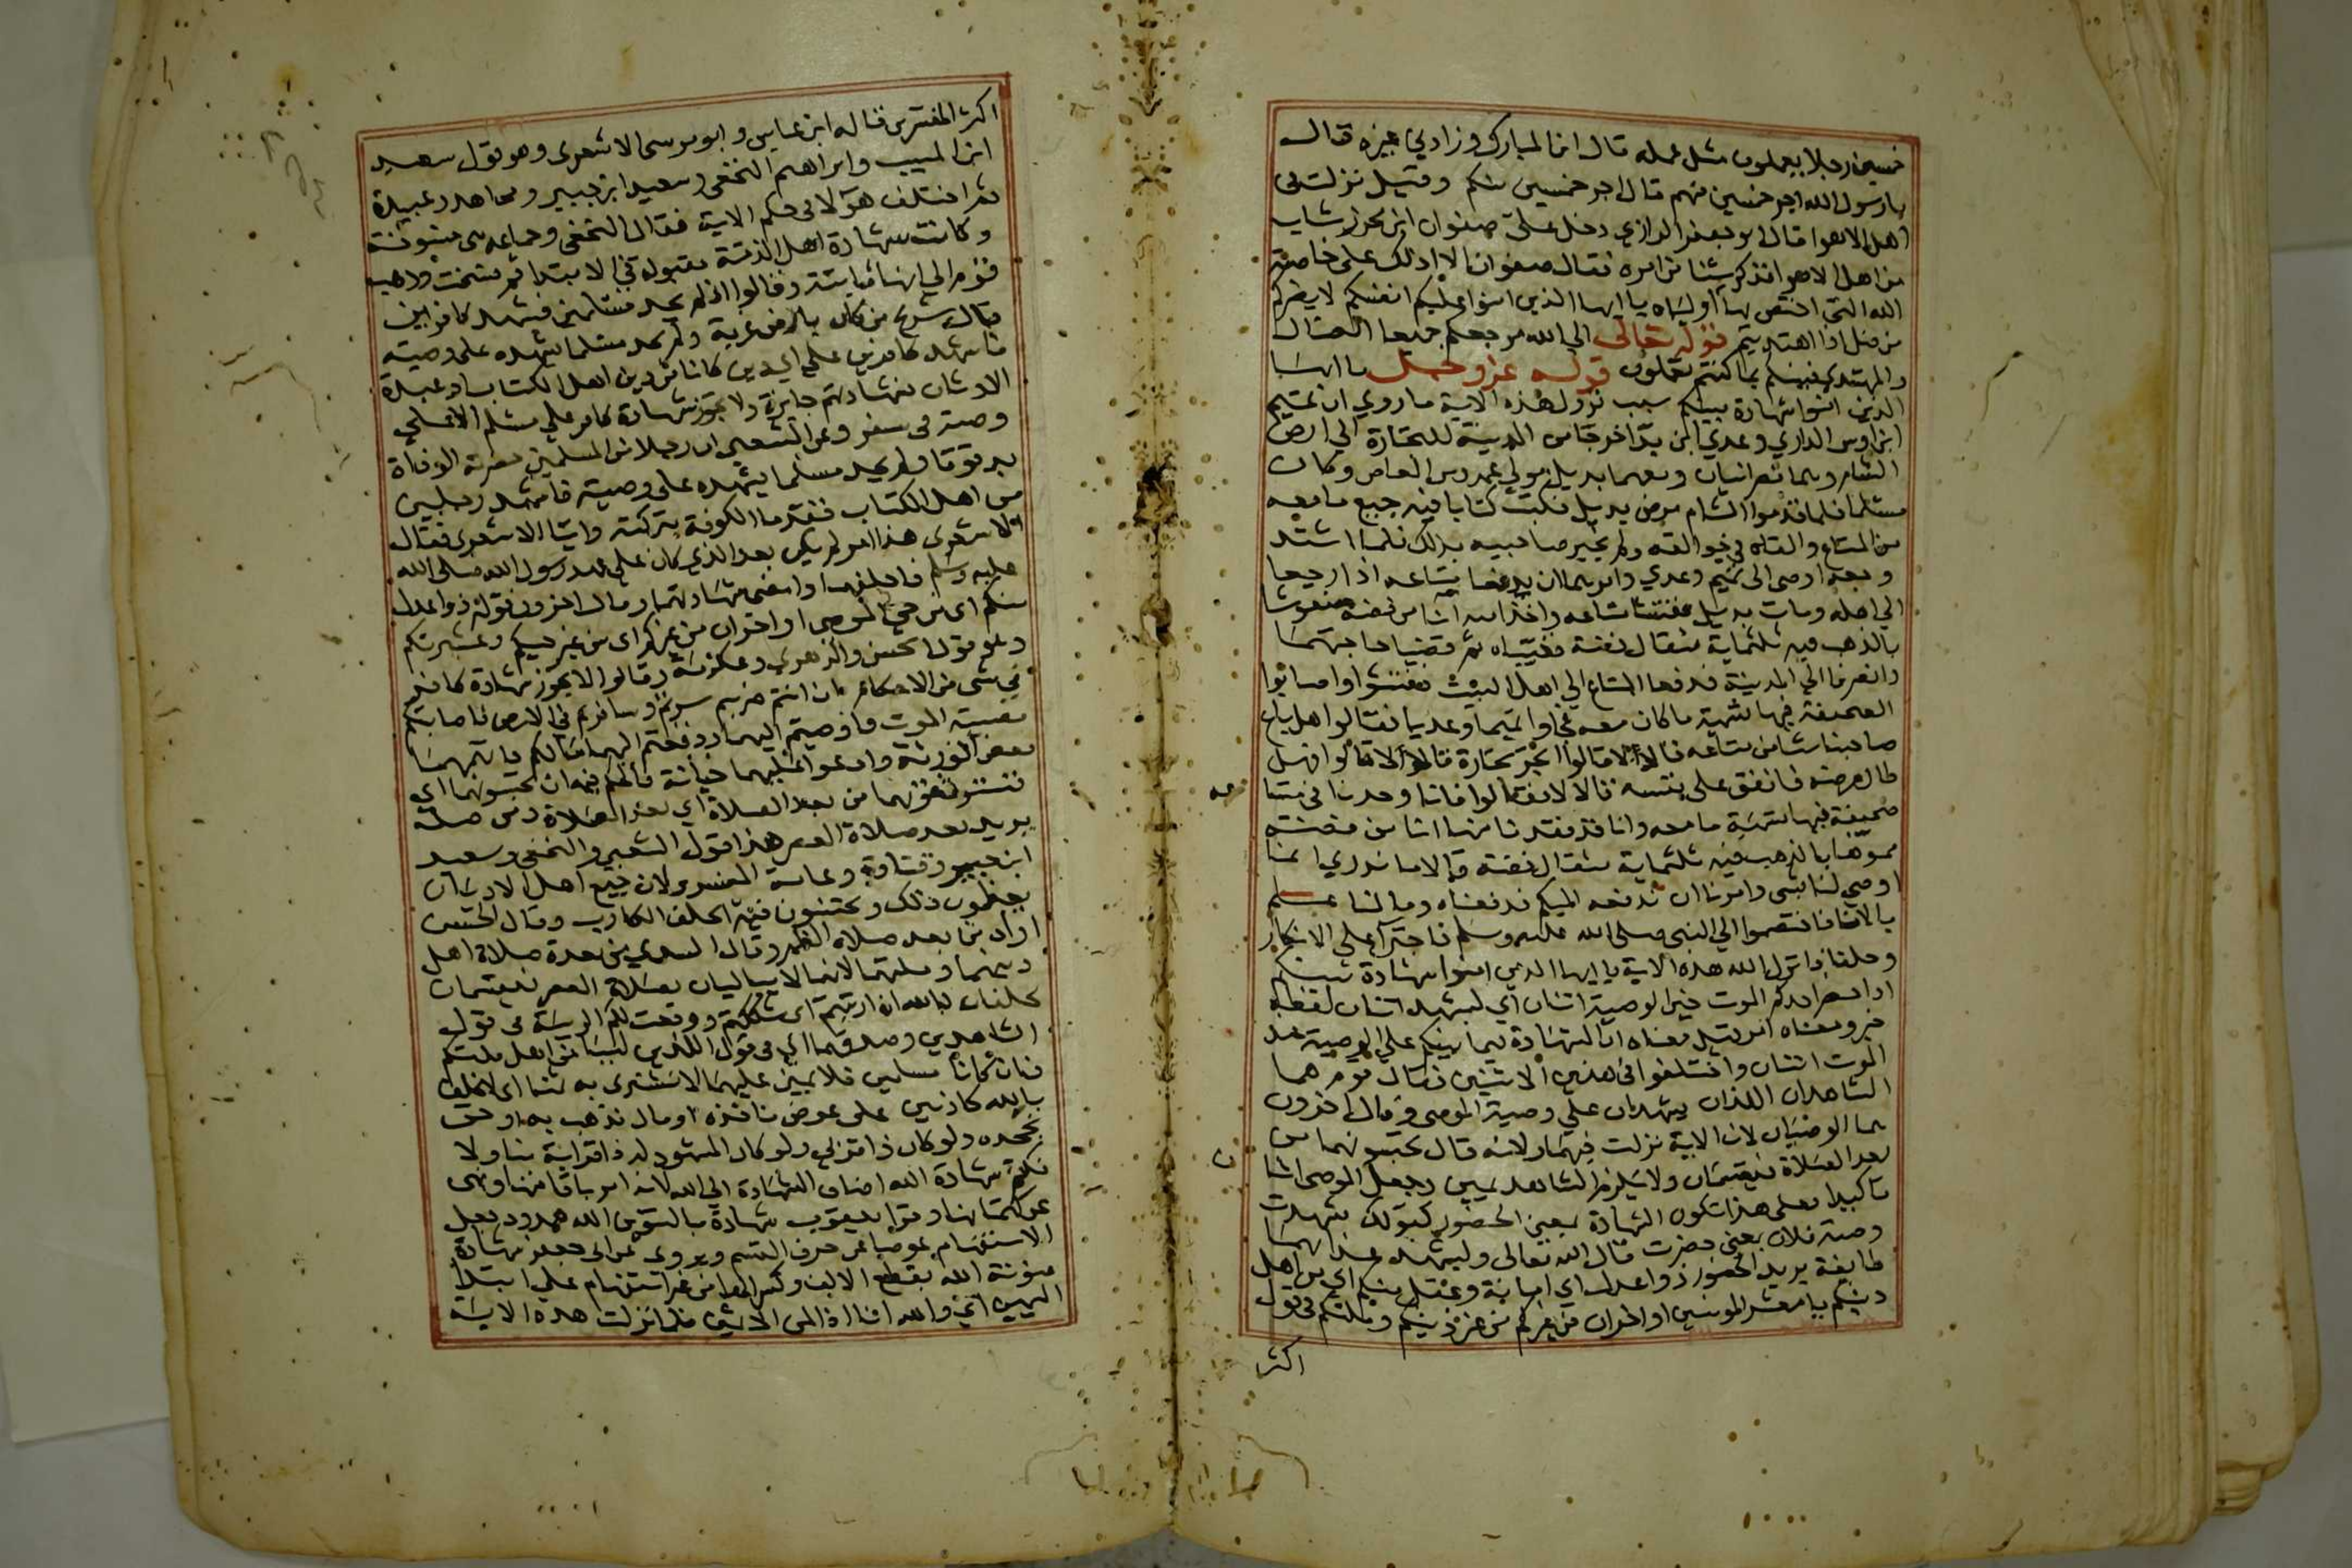 خمسين رجلا يعملون مثل عمله قال ابن المبارك وزادني غيره قال
يا رسول الله اجر خمسين منهم قال اجر خمسين منكم وقيل نزلت في
اهل الاهوا قال ابو جعفر الرازي دخل على صفوان ابن محرز شاب
من اهل الاهوا فذكر شيئا من امره فقال صفوان الا ادلك على خاصة
الله التي اختص بها اولياه يا ايها الذين امنوا عليكم انفسكم لا يضركم
من ضل اذا اهتديتم قوله تعالى الي الله مرجعكم جميعا الضال
والمهتدي فينبئكم بما كنتم تعملون قوله عز وجل يا ايها
الذين امنوا شهادة بينكم سبب نزول هذه الاية ما روي ان تميم
ابن اوس الداري وعدي ابن بدا خرجا من المدينة للتجارة الي ارض
الشام وهما نصرانيان ومعهما بديل مولي عمرو بن العاص وكان
مسلما فلما قدموا الشام مرض بديل فكتب كتابا فيه جميع ما معه
من المتاع والقاه في جوالقه ولم يخبر صاحبيه بذلك فلما اشتد
وجعه اوصى الى تميم وعدي وامرهما ان يدفعا متاعه اذا رجعا
الي اهله ومات بديل ففتشا متاعه واخذا منه انا من فضة منقوشا
بالذهب فيه ثلثماية مثقال فضة فغيباه ثم قضيا حاجتهما
وانصرفا الي المدينة فدفعا المتاع الي اهل البيت ففتشوا واصابوا
الصحيفة فيها تسمية ما كان معه فجاوا تميما وعديا فقالوا هل باع
صاحبنا شيا من متاعه قالا لا قالوا اتجر تجارة قالا لا قالوا فهل
طال مرضه فانفق على نفسه قالا لا فقالوا فانا وجدنا في متاعه
صحيفة فيها تسمية ما معه وانا قد فقدنا منها انا من فضة
مموها بالذهب فيه ثلثماية مثقال فضة قالا ما ندري انما
اوصى لنا بشى وامرنا ان ندفعه اليكم فدفعناه وما لنا علم
بالانا فاختصموا الي النبي صلى الله عليه وسلم فاجترآ على الانكار
وحلفا فانزل الله هذه الاية يا ايها الذين امنوا شهادة بينكم
اذا حضر احدكم الموت حين الوصية اثنان اي ليشهد اثنان لفظه
خبر ومعناه امر وقيل معناه ان الشهادة فيما بينكم على الوصية عند
الموت اثنان واختلفوا في هذين الاثنين فقال قوم هما
الشاهدان اللذان يشهدان على وصية الموصى وقال اخرون
هما الوصيان لان الاية نزلت فيهما ولانه قال تحبسونهما من
بعد الصلاة فيقسمان ولا يلزم الشاهد يمين وجعل الموصى اثنا
تاكيدا فعلى هذا تكون الشهادة بمعنى الحضور كقولك شهدت
وصية فلان بمعنى حضرت قال الله تعالى وليشهد عذابهما
طايفة يريد الحضور ذوا عدل اي امانة وعقل منكم اي من اهل
دينكم يا معشر المومنين او اخران من غيركم من غير دينكم وملتكم في قول
اكثر
اكثر المفسرين قاله ابن عباس وابو موسى الاشعري وهو قول سعيد
ابن المسيب وابراهيم النخعي وسعيد ابن جبير ومجاهد وعبيدة
ثم اختلف هولا في حكم الاية فقال النخعي وجماعة هى منسوخة
وكانت شهادة اهل الذمة مقبولة في الابتدا ثم نسخت وذهب
قوم الي انها ثابتة وقالوا اذا لم يجد مسلمين فيشهد كافرين
قال شريح من كان بارض غربة ولم يجد مسلما يشهده على وصيته
فاشهد كافرين على اي دين كانا من دين اهل الكتاب او عبدة
الاوثان فشهادتهم جايزة ولا تجوز شهادة كافر على مسلم الا على
وصية في سفر وعن الشعبي ان رجلا من المسلمين حضرته الوفاة
بدقوقا ولم يجد مسلما يشهده على وصيته فاشهد رجلين
من اهل الكتاب فقدما الكوفة بتركته واتيا الاشعري فقال
الاشعري هذا امر لم يكن بعد الذي كان على عهد رسول الله صلى الله
عليه وسلم فاحلفهما وامضى شهادتهما وقال اخرون قوله ذوا عدل
منكم اى من حي الموصى او اخران من غيركم اى من غير حيكم وعشيرتكم
وهو قول الحسن والزهري وعكرمة وقالوا لا يجوز شهادة كافر
في شى من الاحكام ان انتم ضربتم سرتم وسافرتم في الارض فاصابتكم
مصيبة الموت فاوصيتم اليهما ودفعتم اليهما مالكم فاتهمهما
بعض الورثة وادعوا عليهما خيانة فالحكم فيه ان تحبسونهما اي
تستوقفونهما من بعد الصلاة اي بعد الصلاة ومن صلة
يريد بعد صلاة العصر هذا قول الشعبي والنخعي وسعيد
ابن جبير وقتادة وعامة المفسرين لان جميع اهل الاديان
يعظمون ذلك ويجتنبون فيه الحلف الكاذب وقال الحسن
اراد من بعد صلاة الظهر وقال السدي من بعد صلاة اهل
دينهما وملتهما لانهما لا يباليان بصلاة العصر فيقسمان
يحلفان بالله ان ارتبتم اى شككتم ووقعت لكم الريبة في قول
الشاهدين وصدقهما اي في قول اللذين ليسا من اهل ملتكم
فان كانا مسلمين فلا يمين عليهما لا نشتري به ثمنا اي لا نحلف
بالله كاذبين على عوض ناخذه او مال نذهب به او حق
نجحده ولو كان ذا قربى ولو كان المشهود له ذا قرابة منا ولا
نكتم شهادة الله اضاف الشهادة الي الله لانه امر باقامتها ونهى
عن كتمانها وقرا يعقوب شهادة بالتنوين الله ممدود بجعل
الاستفهام عوضا عن حرف القسم ويروى عن ابي جعفر شهادة
منونة الله بقطع الالف وكسر الها من غير استفهام على ابتدا
اليمين اي والله انا اذا لمن الاثمين فلما نزلت هذه الاية